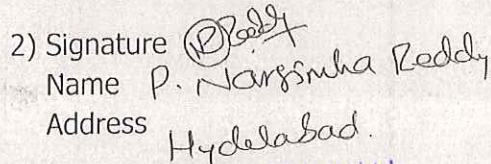 2) Signature P Reddy
Name P. Narsimha Reddy
Address
Hyderabad.